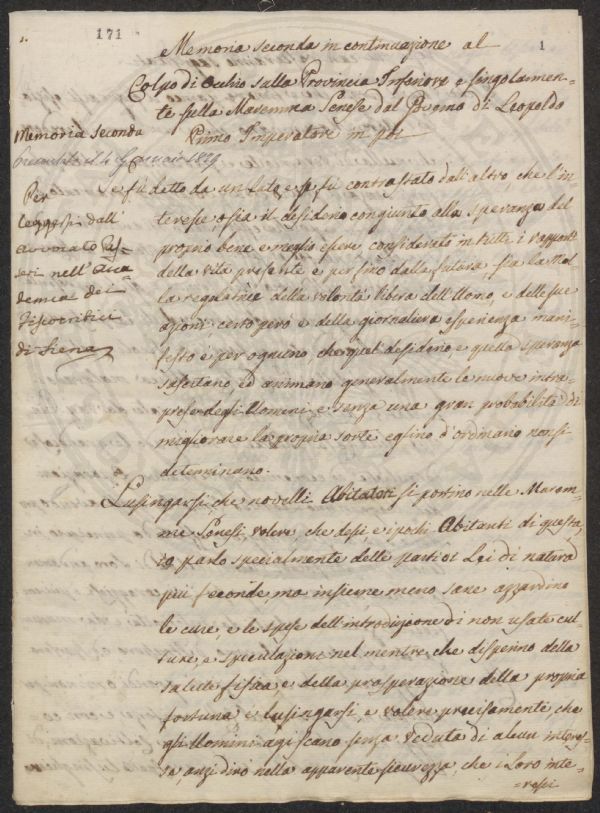 1.
171
1
Memoria seconda in continuazione al
Colpo di Occhio sulla Provincia Inferiore e singolarmen-
te sulla Maremma Senese dal Governo di Leopoldo
Primo Imperatore in poi
Memoria Seconda
1819
Per
leggersi dall'
avvocato
nell' Acca
demia dei
Fisiocritici
di Siena
Fù detto da un lato, e fù contrastato dall'altro, che l'in-
teresse, o sia il desiderio congiunto alla speranza del
proprio bene e meglio essere considerato in tutti i rapporti
della vita presente e per fino della futura sia la Mol
la regolatrice della volontà libera dell'Uomo, e delle sue
azioni: certo però e della giornaliera esperienza mani
festo è per ognuno che quel desiderio e quella speranza
suscitano ed animano generalmente le nuove intra-
prese degli Uomini, e senza una gran probabilità di
migliorare la propria sorte eglino d'ordinario non si
determinano.
Lusingarsi, che novelli Abitatori si portino nelle Marem-
me Senesi, volere, che dessi, e i pochi Abitanti di questa,
io parlo specialmente delle parti di Lei di natura
più feconde ma insieme meno sane azzardino
le cure, e le spese dell'introduzione di non usate cul
ture, e speculazioni nel mentre, che disperino della
salute fisica, e della prosperazione della propria
fortuna, è lusingarsi, e volere precisamente che
gli Uomini agiscano senza veduta di alcun interes-
se, anzi dirò nella apparente sicurezza, che i Loro inte-
=ressi